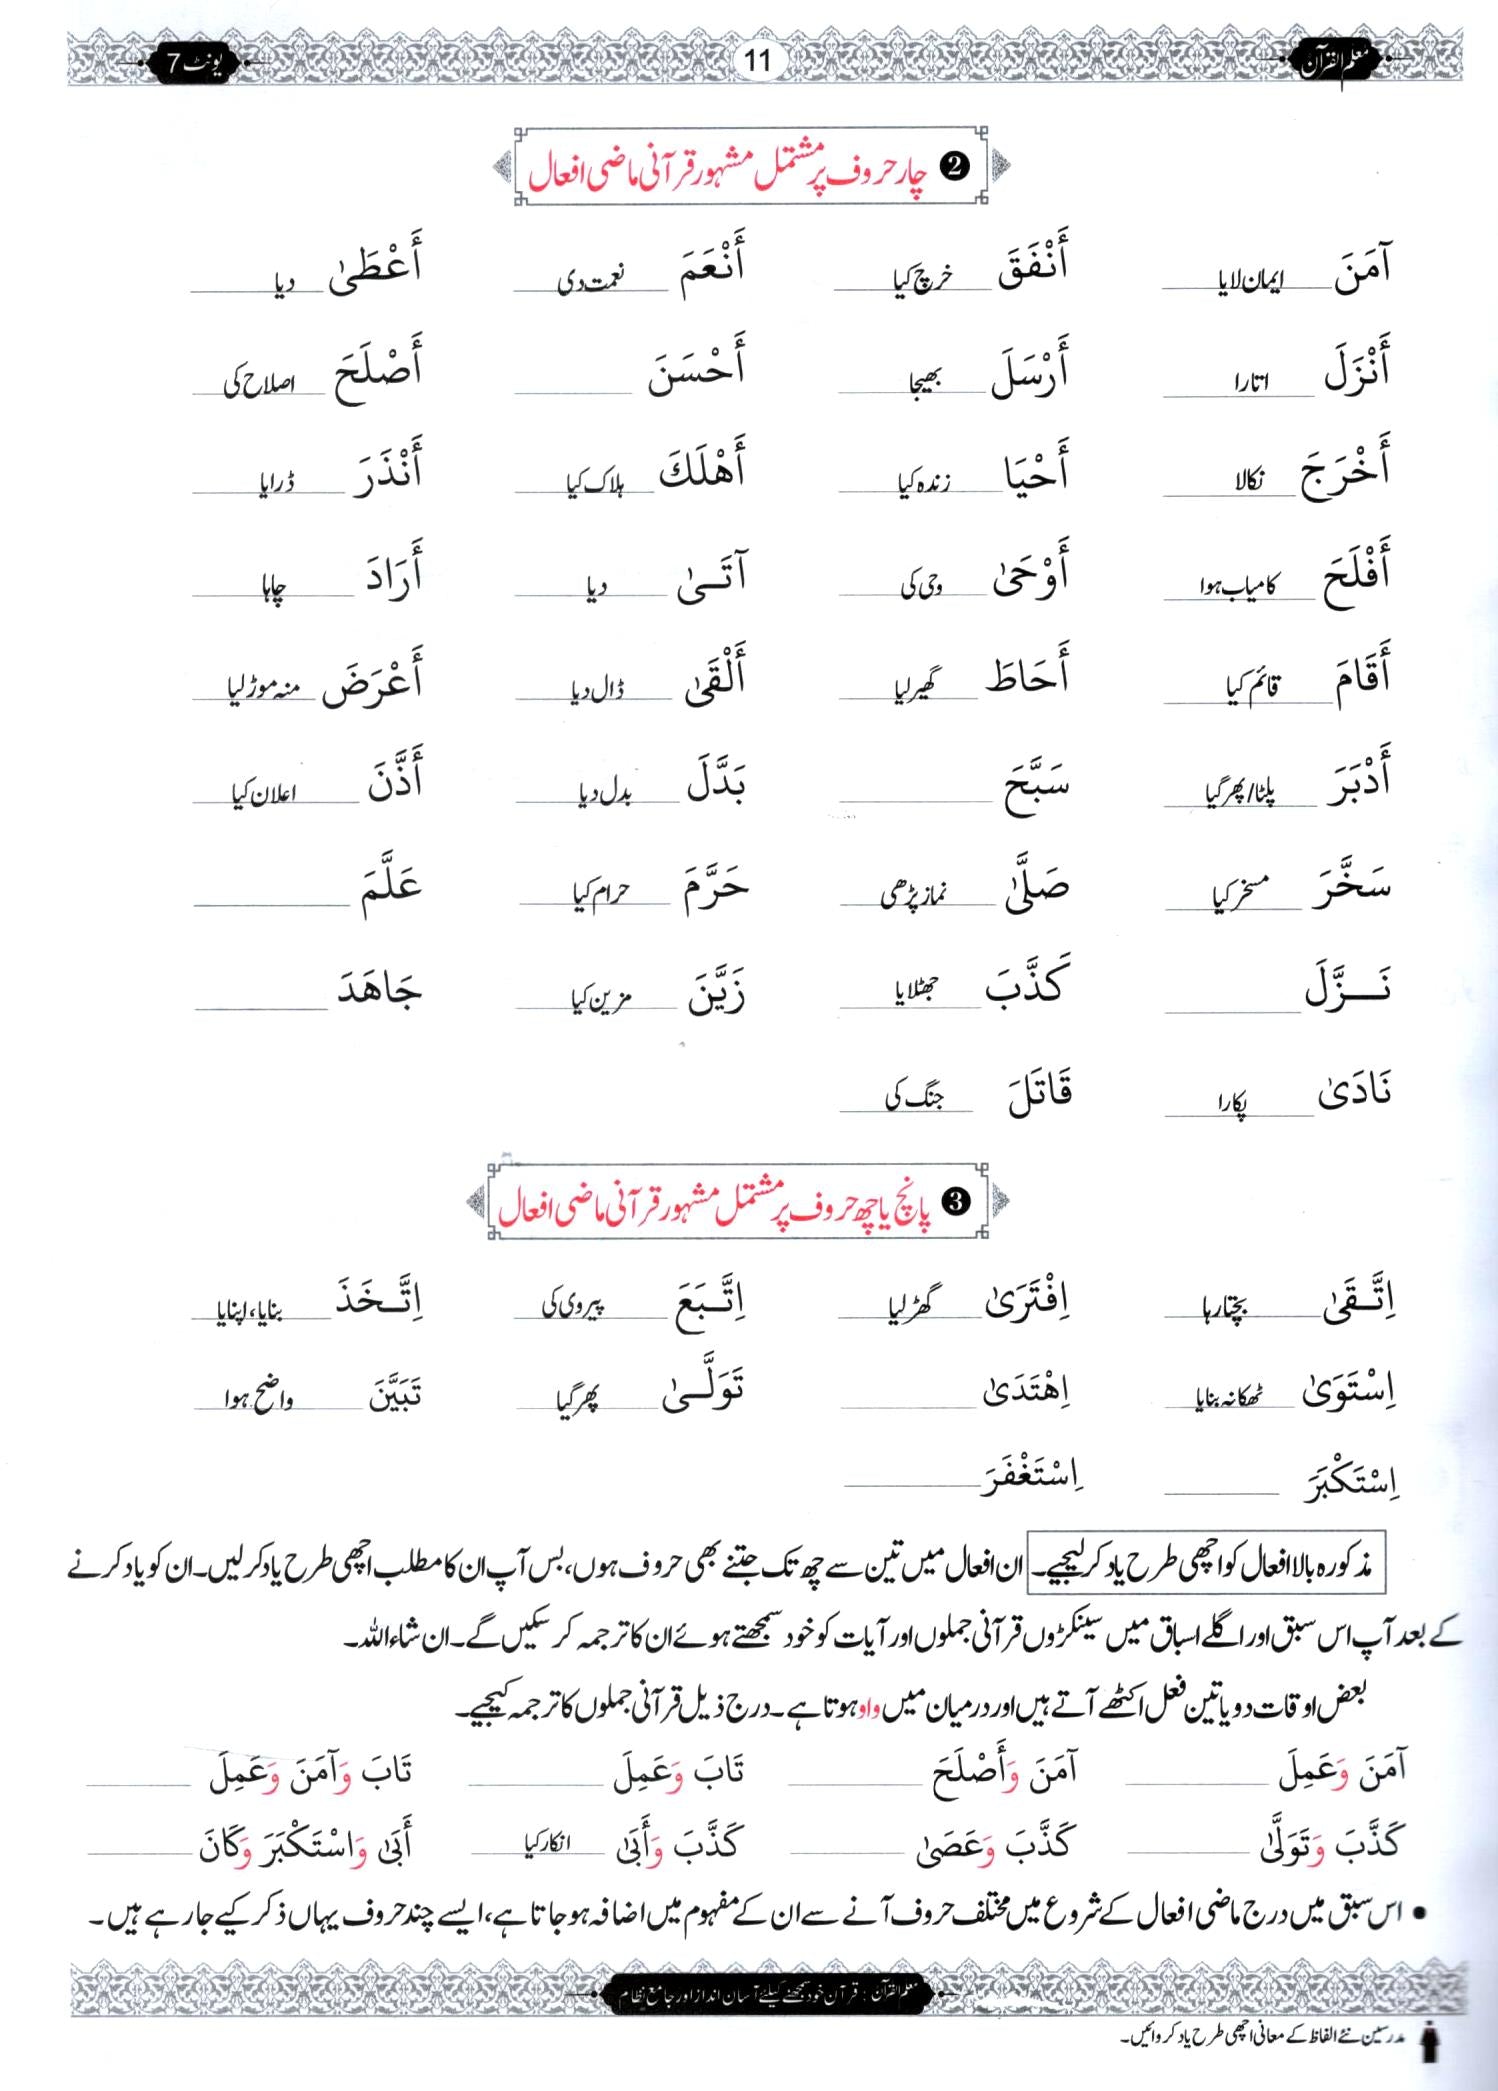 معلم القرآن 11 یونٹ 7
2 چار حروف پر مشتمل مشہور قرآنی ماضی افعال
آمَنَ ایمان لایا أَنْفَقَ خرچ کیا أَنْعَمَ نعمت دی أَعْطَىٰ دیا
أَنْزَلَ اتارا أَرْسَلَ بھیجا أَحْسَنَ أَصْلَحَ اصلاح کی
أَخْرَجَ نکالا أَحْيَا زندہ کیا أَهْلَكَ ہلاک کیا أَنْذَرَ ڈرایا
أَفْلَحَ کامیاب ہوا أَوْحَىٰ وحی کی آتَـىٰ دیا أَرَادَ چاہا
أَقَامَ قائم کیا أَحَاطَ گھیر لیا أَلْقَىٰ ڈال دیا أَعْرَضَ منہ موڑ لیا
أَدْبَرَ پلٹا/پھر گیا سَبَّحَ بَدَّلَ بدل دیا أَذَّنَ اعلان کیا
سَخَّرَ مسخر کیا صَلَّىٰ نماز پڑھی حَرَّمَ حرام کیا عَلَّمَ
نَـزَّلَ كَذَّبَ جھٹلایا زَيَّنَ مزین کیا جَاهَدَ
نَادَىٰ پکارا قَاتَلَ جنگ کی
3 پانچ یا چھ حروف پر مشتمل مشہور قرآنی ماضی افعال
اِتَّـقَىٰ بچتا رہا اِفْتَرَىٰ گھڑ لیا اِتَّـبَعَ پیروی کی اِتَّـخَذَ بنایا، اپنایا
اِسْتَوَىٰ ٹھکانہ بنایا اِهْتَدَىٰ تَوَلَّـىٰ پھر گیا تَبَيَّنَ واضح ہوا
اِسْتَكْبَرَ اِسْتَغْفَرَ
مذکورہ بالا افعال کو اچھی طرح یاد کر لیجیے۔ ان افعال میں تین سے چھ تک جتنے بھی حروف ہوں، بس آپ ان کا مطلب اچھی طرح یاد کر لیں۔ ان کو یاد کرنے
کے بعد آپ اس سبق اور اگلے اسباق میں سینکڑوں قرآنی جملوں اور آیات کو خود سمجھتے ہوئے ان کا ترجمہ کر سکیں گے۔ ان شاء اللہ۔
بعض اوقات دو یا تین فعل اکٹھے آتے ہیں اور درمیان میں واو ہوتا ہے۔ درج ذیل قرآنی جملوں کا ترجمہ کیجیے۔
آمَنَ وَعَمِلَ آمَنَ وَأَصْلَحَ تَابَ وَعَمِلَ تَابَ وَآمَنَ وَعَمِلَ
كَذَّبَ وَتَوَلَّىٰ كَذَّبَ وَعَصَىٰ كَذَّبَ وَأَبَىٰ انکار کیا أَبَىٰ وَاسْتَكْبَرَ وَكَانَ
• اس سبق میں درج ماضی افعال کے شروع میں مختلف حروف آنے سے ان کے مفہوم میں اضافہ ہو جاتا ہے، ایسے چند حروف یہاں ذکر کیے جا رہے ہیں۔
معلم القرآن : قرآن خود سمجھنے کیلئے آسان انداز اور جامع نظام
مدرسین نئے الفاظ کے معانی اچھی طرح یاد کروائیں۔